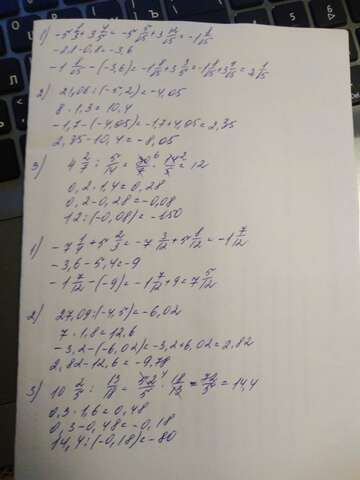 1) -5 1/3 + 3 4/5 = -5 5/15 + 3 12/15 = -1 8/15
-2,8 - 0,8 = -3,6
-1 8/15 - (-3,6) = -1 8/15 + 3 3/5 = -1 8/15 + 3 9/15 = 2 1/15
2) 21,06 : (-5,2) = -4,05
8 · 1,3 = 10,4
-1,7 - (-4,05) = -1,7 + 4,05 = 2,35
2,35 - 10,4 = -8,05
3) 4 2/7 : 5/14 = 30/7 · 14/5 = 12
0,2 · 1,4 = 0,28
0,2 - 0,28 = -0,08
12 : (-0,08) = -150
1) -7 1/4 + 5 2/3 = -7 3/12 + 5 8/12 = -1 7/12
-3,6 - 5,4 = -9
-1 7/12 - (-9) = -1 7/12 + 9 = 7 5/12
2) 27,09 : (-4,5) = -6,02
7 · 1,8 = 12,6
-3,2 - (-6,02) = -3,2 + 6,02 = 2,82
2,82 - 12,6 = -9,78
3) 10 2/5 : 13/18 = 52/5 · 18/13 = 72/5 = 14,4
0,3 · 1,6 = 0,48
0,3 - 0,48 = -0,18
14,4 : (-0,18) = -80